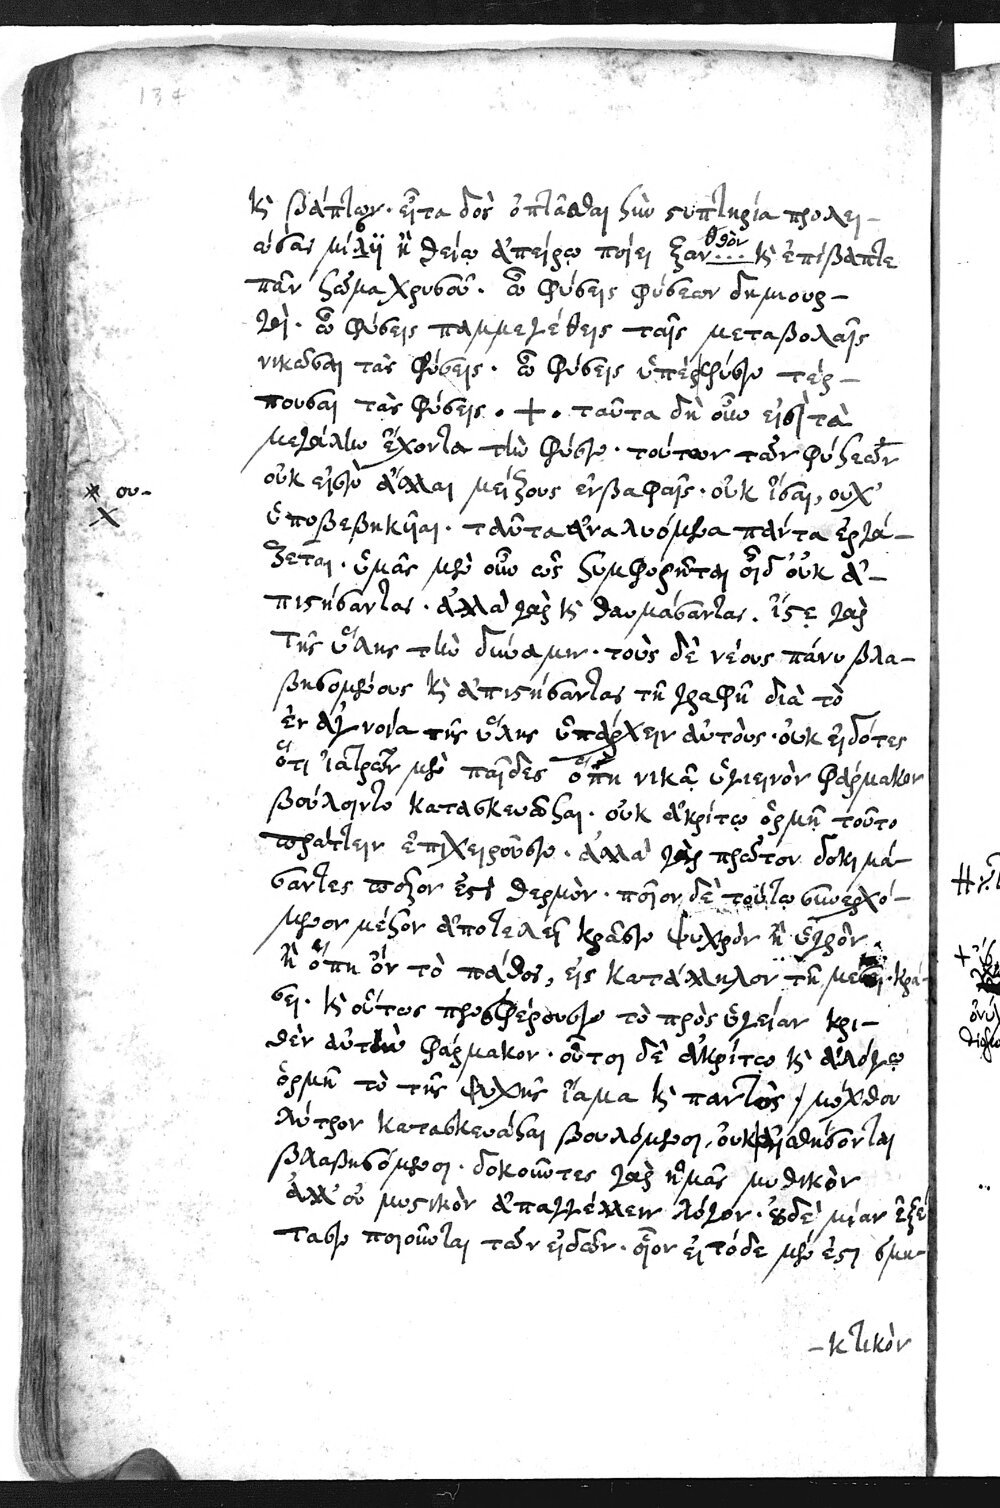 134
κὶ βάπτων· εἶτα δὸς ὀπτᾶσθαι σὺν στυπτηρία προλει-
ώσας μίσυϊ ἢ θείῳ ἀπείρῳ ποίει ξαν...θὸν κὶ ἐπίβαπτε
πᾶν σῶμα χρυσοῦ. ὦ φύσεις φύσεων δημιουρ-
γοὶ. ὦ φύσεις παμμεγέθεις ταῖς μεταβολαῖς
νικῶσαι τὰς φύσεις. ὦ φύσεις ὑπὲρ φύσιν τέρ-
πουσαι τὰς φύσεις. +. ταῦτα δὴ οὖν εἰσὶ τὰ
μεγάλην ἔχοντα τὴν φύσιν. τούτων τῶν φύσεων
οὐκ εἰσὶν ἄλλαι μείζους ἐν βαφαῖς. οὐκ ἴσαι, οὐχ'
ὑποβεβηκῆαι. ταῦτα ἀναλυόμενα πάντα ἐργά-
ζεται. ὑμᾶς μὲν οὖν ὡς συμφορῆται οἶδ' οὐκ ἀ-
πιστήσαντας. ἀλλὰ γὰρ κὶ θαυμάσαντας. ἴστε γὰρ
τῆς ὕλης τὴν δύναμιν. τοὺς δὲ νέους πάνυ βλα-
βησομένους κὶ ἀπιστήσαντας τῇ γραφῇ διὰ τὸ
ἐν ἀγνοία τῆς ὕλης ὑπάρχειν αὐτούς. οὐκ εἰδότες
ὅτι ἰατρῶν μὲν παῖδες ὅπη νικᾷ ὑγιεινὸν φάρμακον
βούλοιντο κατασκευᾶσαι. οὐκ ἀκρίτῳ ὁρμῇ τοῦτο
πράττειν ἐπιχειροῦσιν. ἀλλὰ γὰρ πρῶτον δοκιμά-
σαντες ποῖον ἐστὶ θερμὸν. ποῖον δὲ τούτῳ συνερχό-
μενον μέσον ἀποτελεῖ κρᾶσιν ψυχρὸν ἢ ὑγρὸν.
ἢ ὅπη ὂν τὸ πάθος, εἰς κατάλληλον τῇ μέσῃ κρά-
σει. κὶ οὕτως προσφέρουσιν τὸ πρὸς ὑγείαν κρι-
θὲν αὐτῶν φάρμακον. οὗτοι δὲ ἀκρίτῳ κὶ ἀλόγῳ
ὁρμῇ τὸ τῆς ψυχῆς ἴαμα κὶ παντὸς μόχθου
λύτρον κατασκευάσαι βουλόμενοι, οὐκ αἰσθήσονται
βλαβησόμενοι. δοκοῦντες γὰρ ἡμᾶς μυθικὸν
ἀλλ' οὐ μυστικὸν ἀπαγγέλλειν λόγον. οὐδὲ μίαν ἐξέ
τασιν ποιοῦνται τῶν εἰδῶν. οἷον εἰ τόδε μέν ἐστι σμη-
-κτικὸν
* ου-
χ